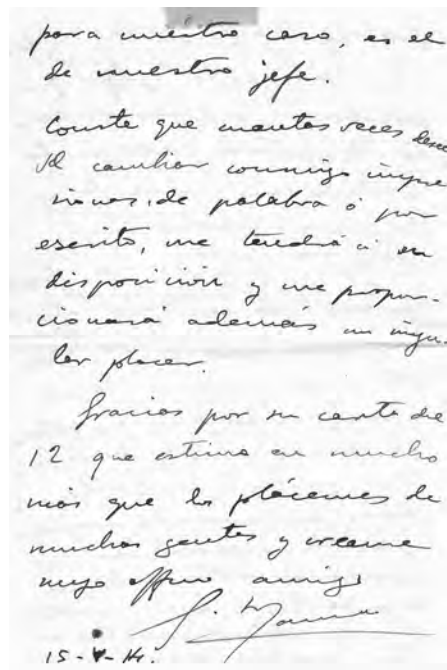 para nuestro caso, es el
de nuestro jefe.
Conste que cuantas veces desee
Vd cambiar conmigo impre
siones, de palabra ó por
escrito, me tendrá á su
disposición y me propor-
cionará además un singu-
lar placer.
Gracias por su carta del
12 que estimo en mucho
más que los plácemes de
muchas gentes y créame
suyo affmo amigo
15-V-14.